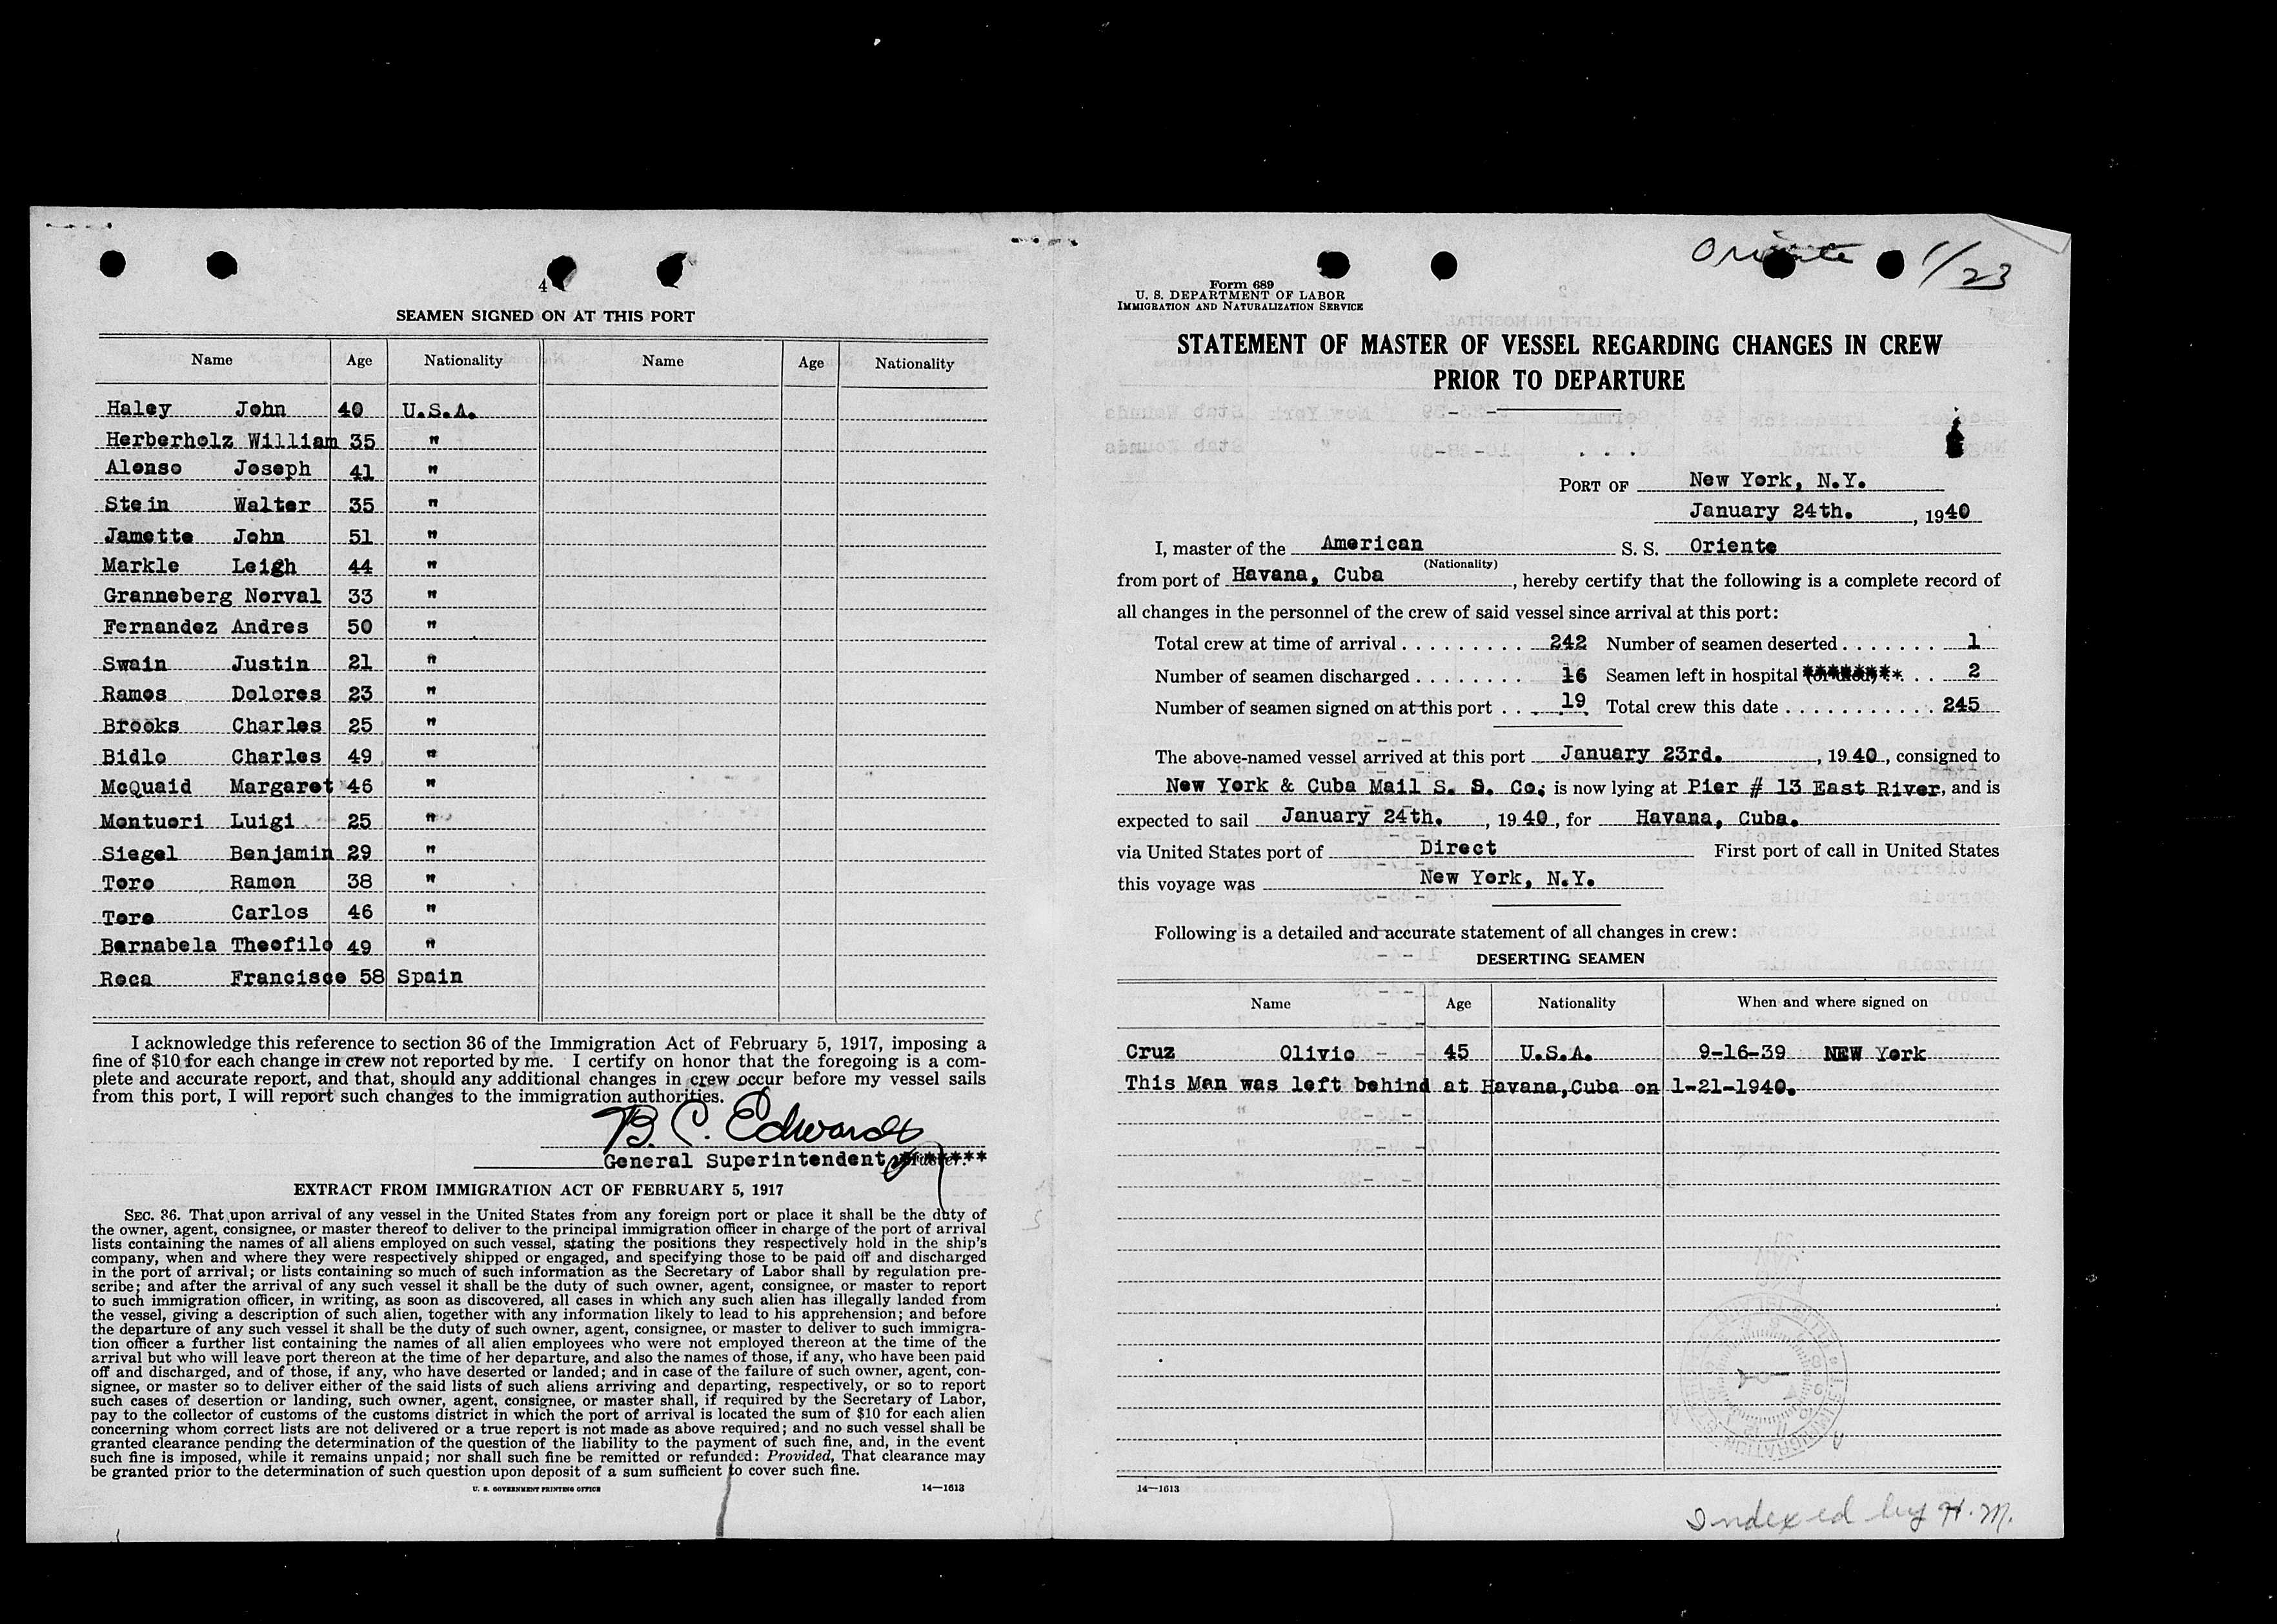 4
SEAMEN SIGNED ON AT THIS PORT
Name Age Nationality Name Age Nationality
Haley John 40 U.S.A.
Herberholz William 35 "
Alonso Joseph 41 "
Stein Walter 35 "
Jamette John 51 "
Markle Leigh 44 "
Granneberg Norval 33 "
Fernandez Andres 50 "
Swain Justin 21 "
Ramos Dolores 23 "
Brooks Charles 25 "
Bidlo Charles 49 "
McQuaid Margaret 46 "
Montuori Luigi 25 "
Siegel Benjamin 29 "
Toro Ramon 38 "
Toro Carlos 46 "
Barnabela Theofilo 49 "
Roca Francisco 58 Spain
I acknowledge this reference to section 36 of the Immigration Act of February 5, 1917, imposing a
fine of $10 for each change in crew not reported by me. I certify on honor that the foregoing is a com-
plete and accurate report, and that, should any additional changes in crew occur before my vessel sails
from this port, I will report such changes to the immigration authorities.
B. C. Edwards
General Superintendent
EXTRACT FROM IMMIGRATION ACT OF FEBRUARY 5, 1917
SEC. 36. That upon arrival of any vessel in the United States from any foreign port or place it shall be the duty of
the owner, agent, consignee, or master thereof to deliver to the principal immigration officer in charge of the port of arrival
lists containing the names of all aliens employed on such vessel, stating the positions they respectively hold in the ship's
company, when and where they were respectively shipped or engaged, and specifying those to be paid off and discharged
in the port of arrival; or lists containing so much of such information as the Secretary of Labor shall by regulation pre-
scribe; and after the arrival of any such vessel it shall be the duty of such owner, agent, consignee, or master to report
to such immigration officer, in writing, as soon as discovered, all cases in which any such alien has illegally landed from
the vessel, giving a description of such alien, together with any information likely to lead to his apprehension; and before
the departure of any such vessel it shall be the duty of such owner, agent, consignee, or master to deliver to such immigra-
tion officer a further list containing the names of all alien employees who were not employed thereon at the time of the
arrival but who will leave port thereon at the time of her departure, and also the names of those, if any, who have been paid
off and discharged, and of those, if any, who have deserted or landed; and in case of the failure of such owner, agent, con-
signee, or master so to deliver either of the said lists of such aliens arriving and departing, respectively, or so to report
such cases of desertion or landing, such owner, agent, consignee, or master shall, if required by the Secretary of Labor,
pay to the collector of customs of the customs district in which the port of arrival is located the sum of $10 for each alien
concerning whom correct lists are not delivered or a true report is not made as above required; and no such vessel shall be
granted clearance pending the determination of the question of the liability to the payment of such fine, and, in the event
such fine is imposed, while it remains unpaid; nor shall such fine be remitted or refunded: Provided, That clearance may
be granted prior to the determination of such question upon deposit of a sum sufficient to cover such fine.
U. S. GOVERNMENT PRINTING OFFICE 14—1613
Oriente 1/23
Form 689
U. S. DEPARTMENT OF LABOR
IMMIGRATION AND NATURALIZATION SERVICE
STATEMENT OF MASTER OF VESSEL REGARDING CHANGES IN CREW
PRIOR TO DEPARTURE
PORT OF New York, N.Y.
January 24th., 1940
I, master of the American S. S. Oriente
(Nationality)
from port of Havana, Cuba, hereby certify that the following is a complete record of
all changes in the personnel of the crew of said vessel since arrival at this port:
Total crew at time of arrival . . . . . . . . . 242 Number of seamen deserted . . . . . . . 1
Number of seamen discharged . . . . . . . . 16 Seamen left in hospital . . . 2
Number of seamen signed on at this port . . . 19 Total crew this date . . . . . . . . . . . 245
The above-named vessel arrived at this port January 23rd., 1940, consigned to
New York & Cuba Mail S. S. Co; is now lying at Pier # 13 East River, and is
expected to sail January 24th., 1940, for Havana, Cuba.
via United States port of Direct First port of call in United States
this voyage was New York, N.Y.
Following is a detailed and accurate statement of all changes in crew:
DESERTING SEAMEN
Name Age Nationality When and where signed on
Cruz Olivio 45 U.S.A. 9-16-39 NEW York
This Man was left behind at Havana, Cuba on 1-21-1940.
14—1613
Indexed by H. M.